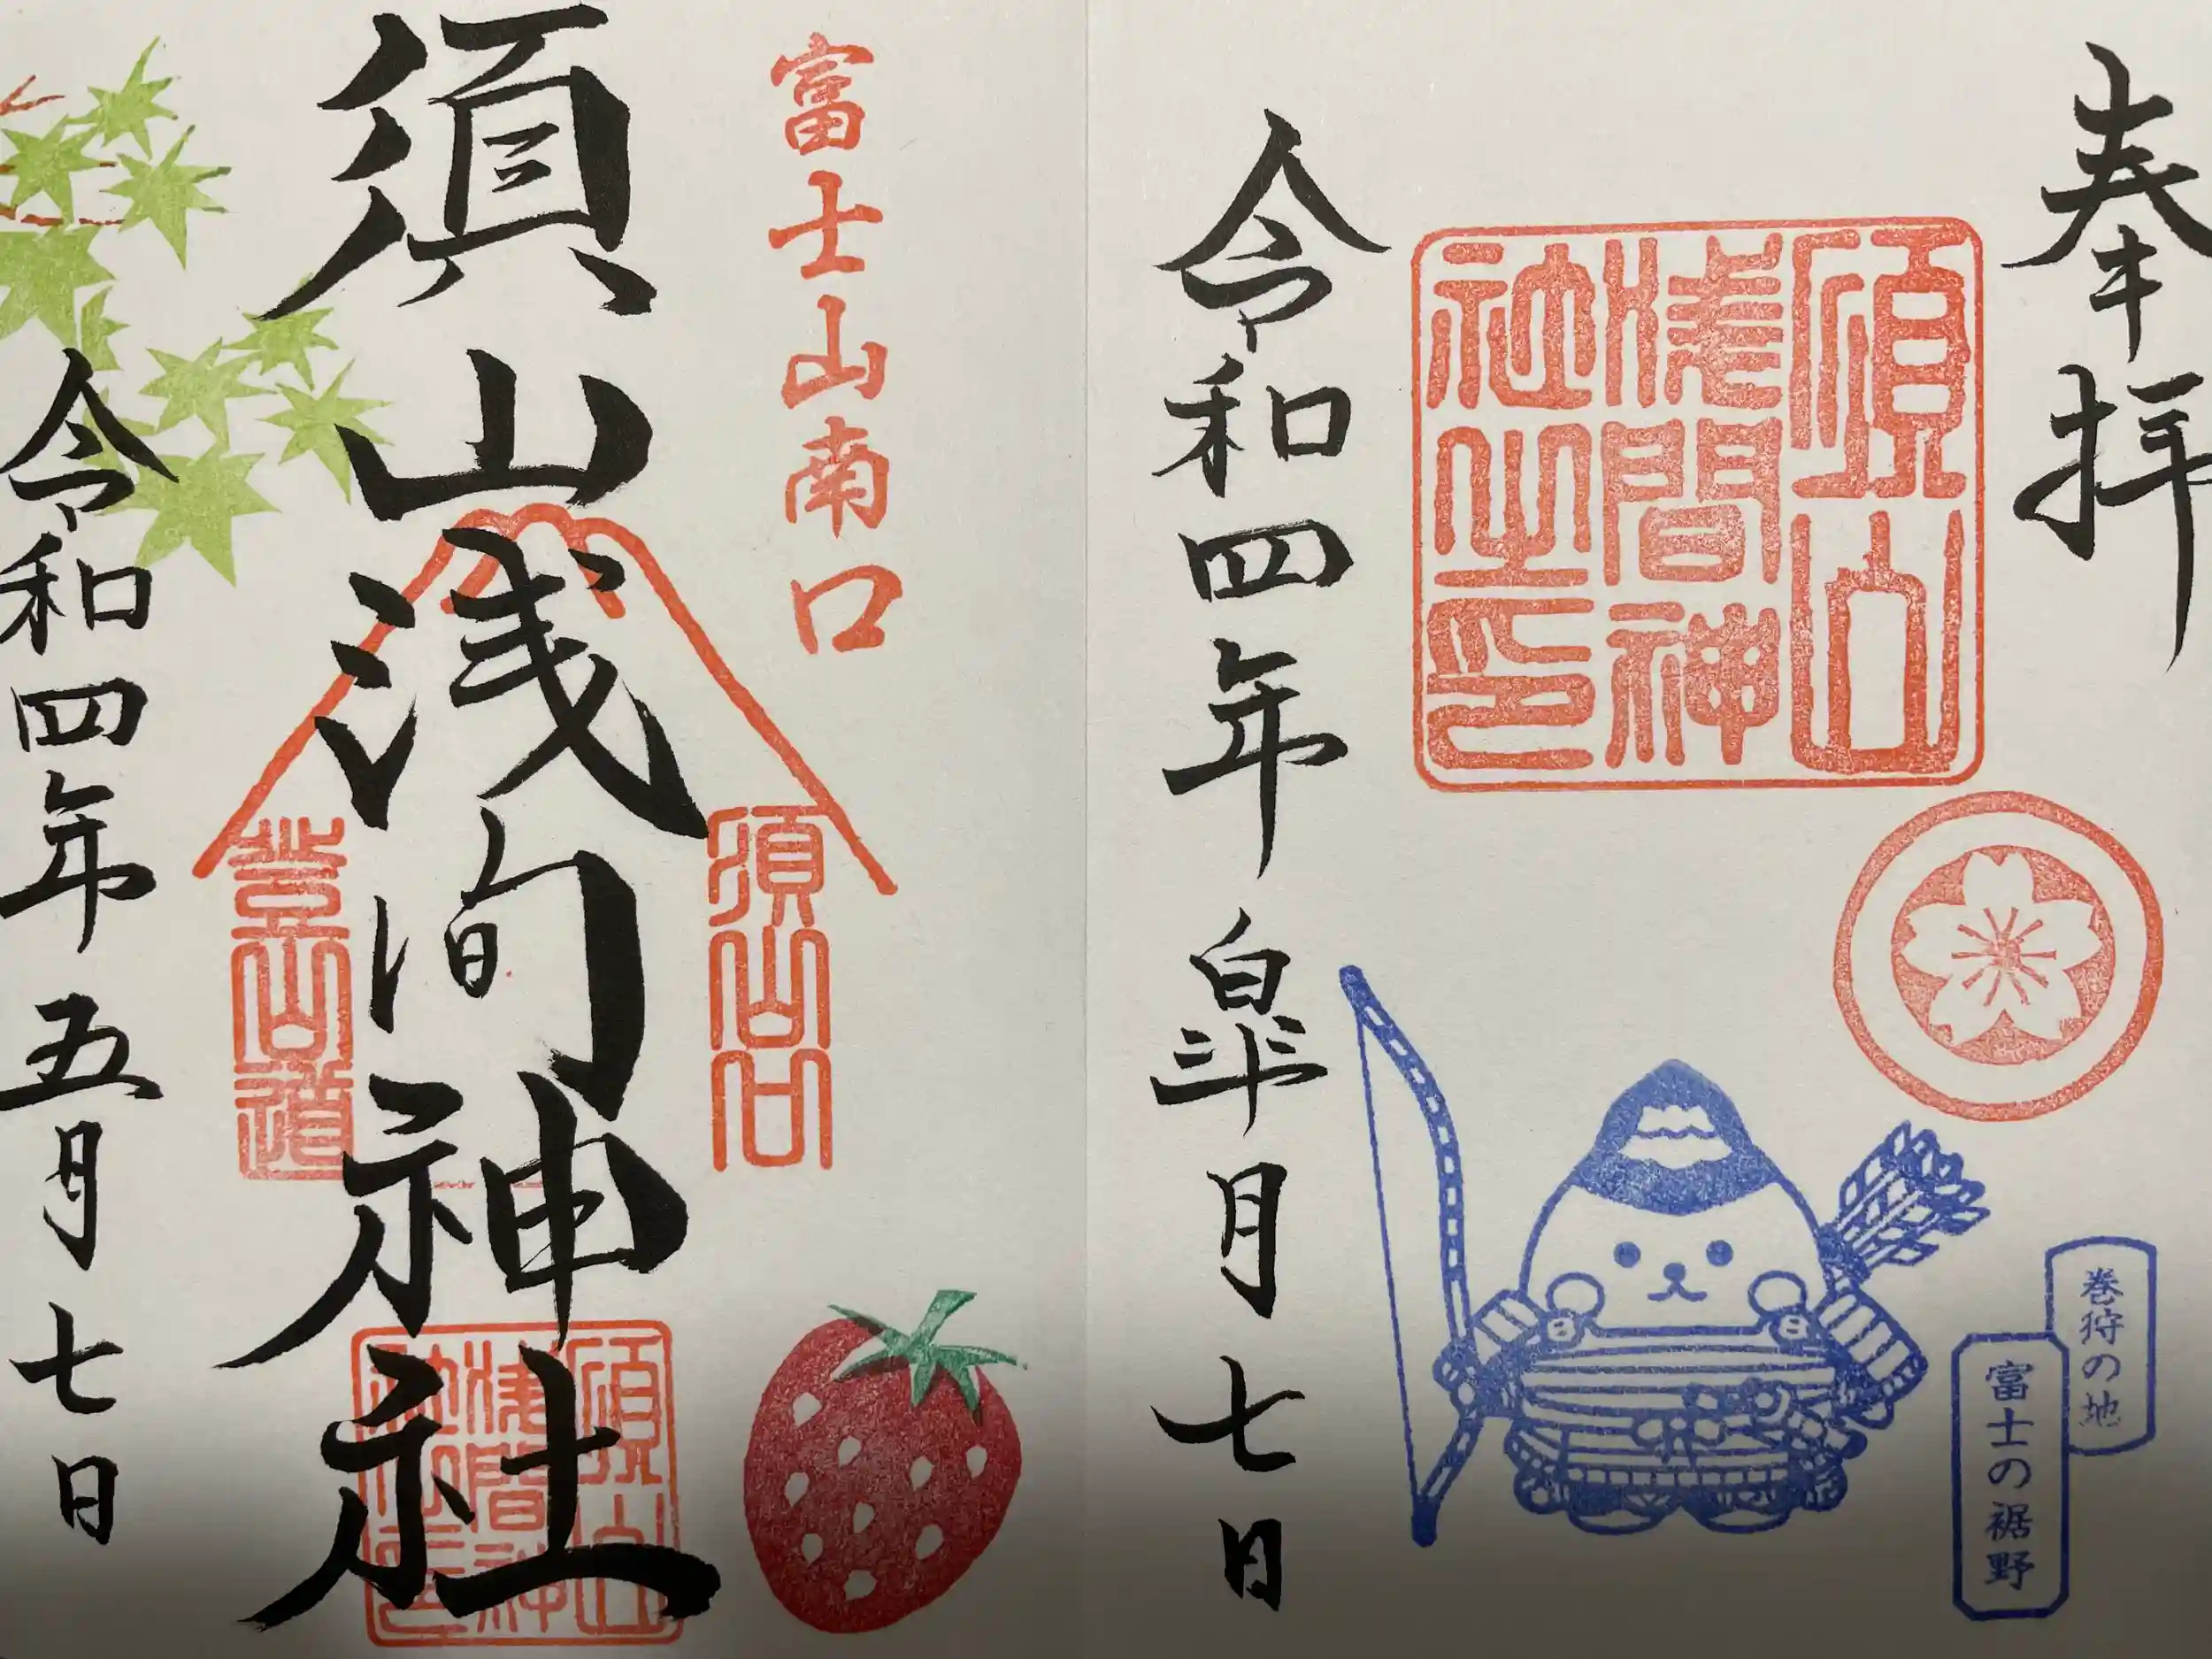 奉拝
須山
浅間神
社之印
令和四年皐月七日
巻狩の地
富士の裾野
富士山南口
須山口
登山道
須山浅間神社
須山
浅間神
社之印
令和四年五月七日